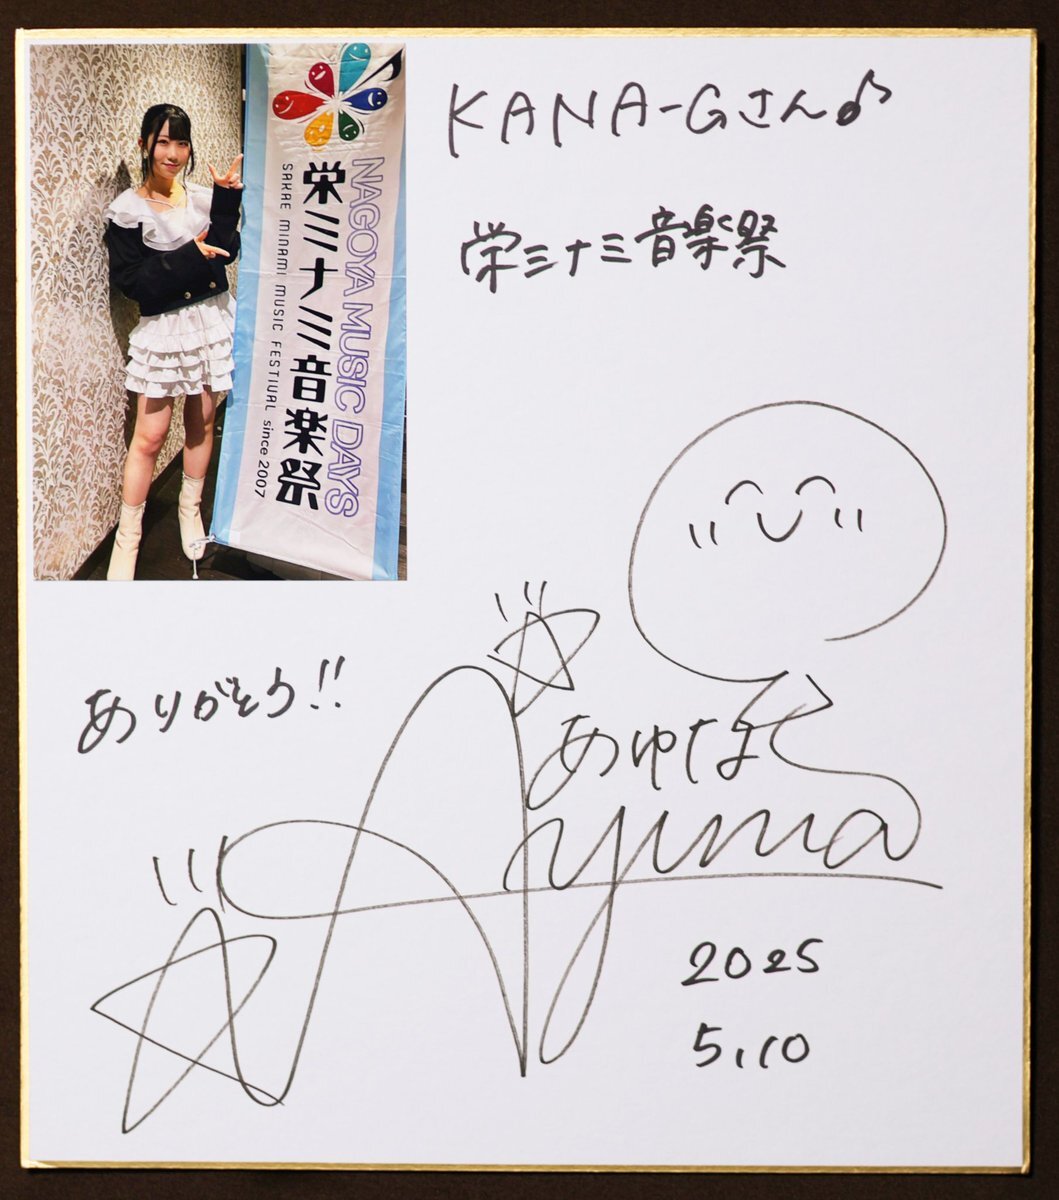 KANA-Gさん♪
栄ミナミ音楽祭
NAGOYA MUSIC DAYS
栄ミナミ音楽祭
SAKAE MINAMI MUSIC FESTIVAL since 2007
ありがとう!!
あゆな
Ayuna
2025
5.10